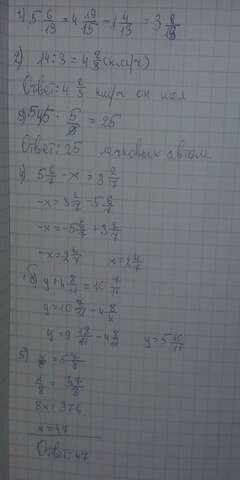 1) 5 6/13 = 4 19/13 - 1 4/13 = 3 8/13
2) 14:3 = 4 2/3 (км/ч)
Ответ: 4 2/3 км/ч он шёл
3) 45 · 5/9 = 25
Ответ: 25 легковых автом
4) 5 6/7 - x = 3 2/7
-x = 3 2/7 - 5 6/7
-x = -5 6/7 + 3 2/7
-x = 2 4/7 x = 2 4/7
y + 4 8/11 = 10 7/11
y = 10 7/11 - 4 8/11
y = 9 18/11 - 4 8/11 y = 5 10/11
5) x/8 = 5 7/8
x/8 = 47/8
8x = 376
x = 47
Ответ: 47